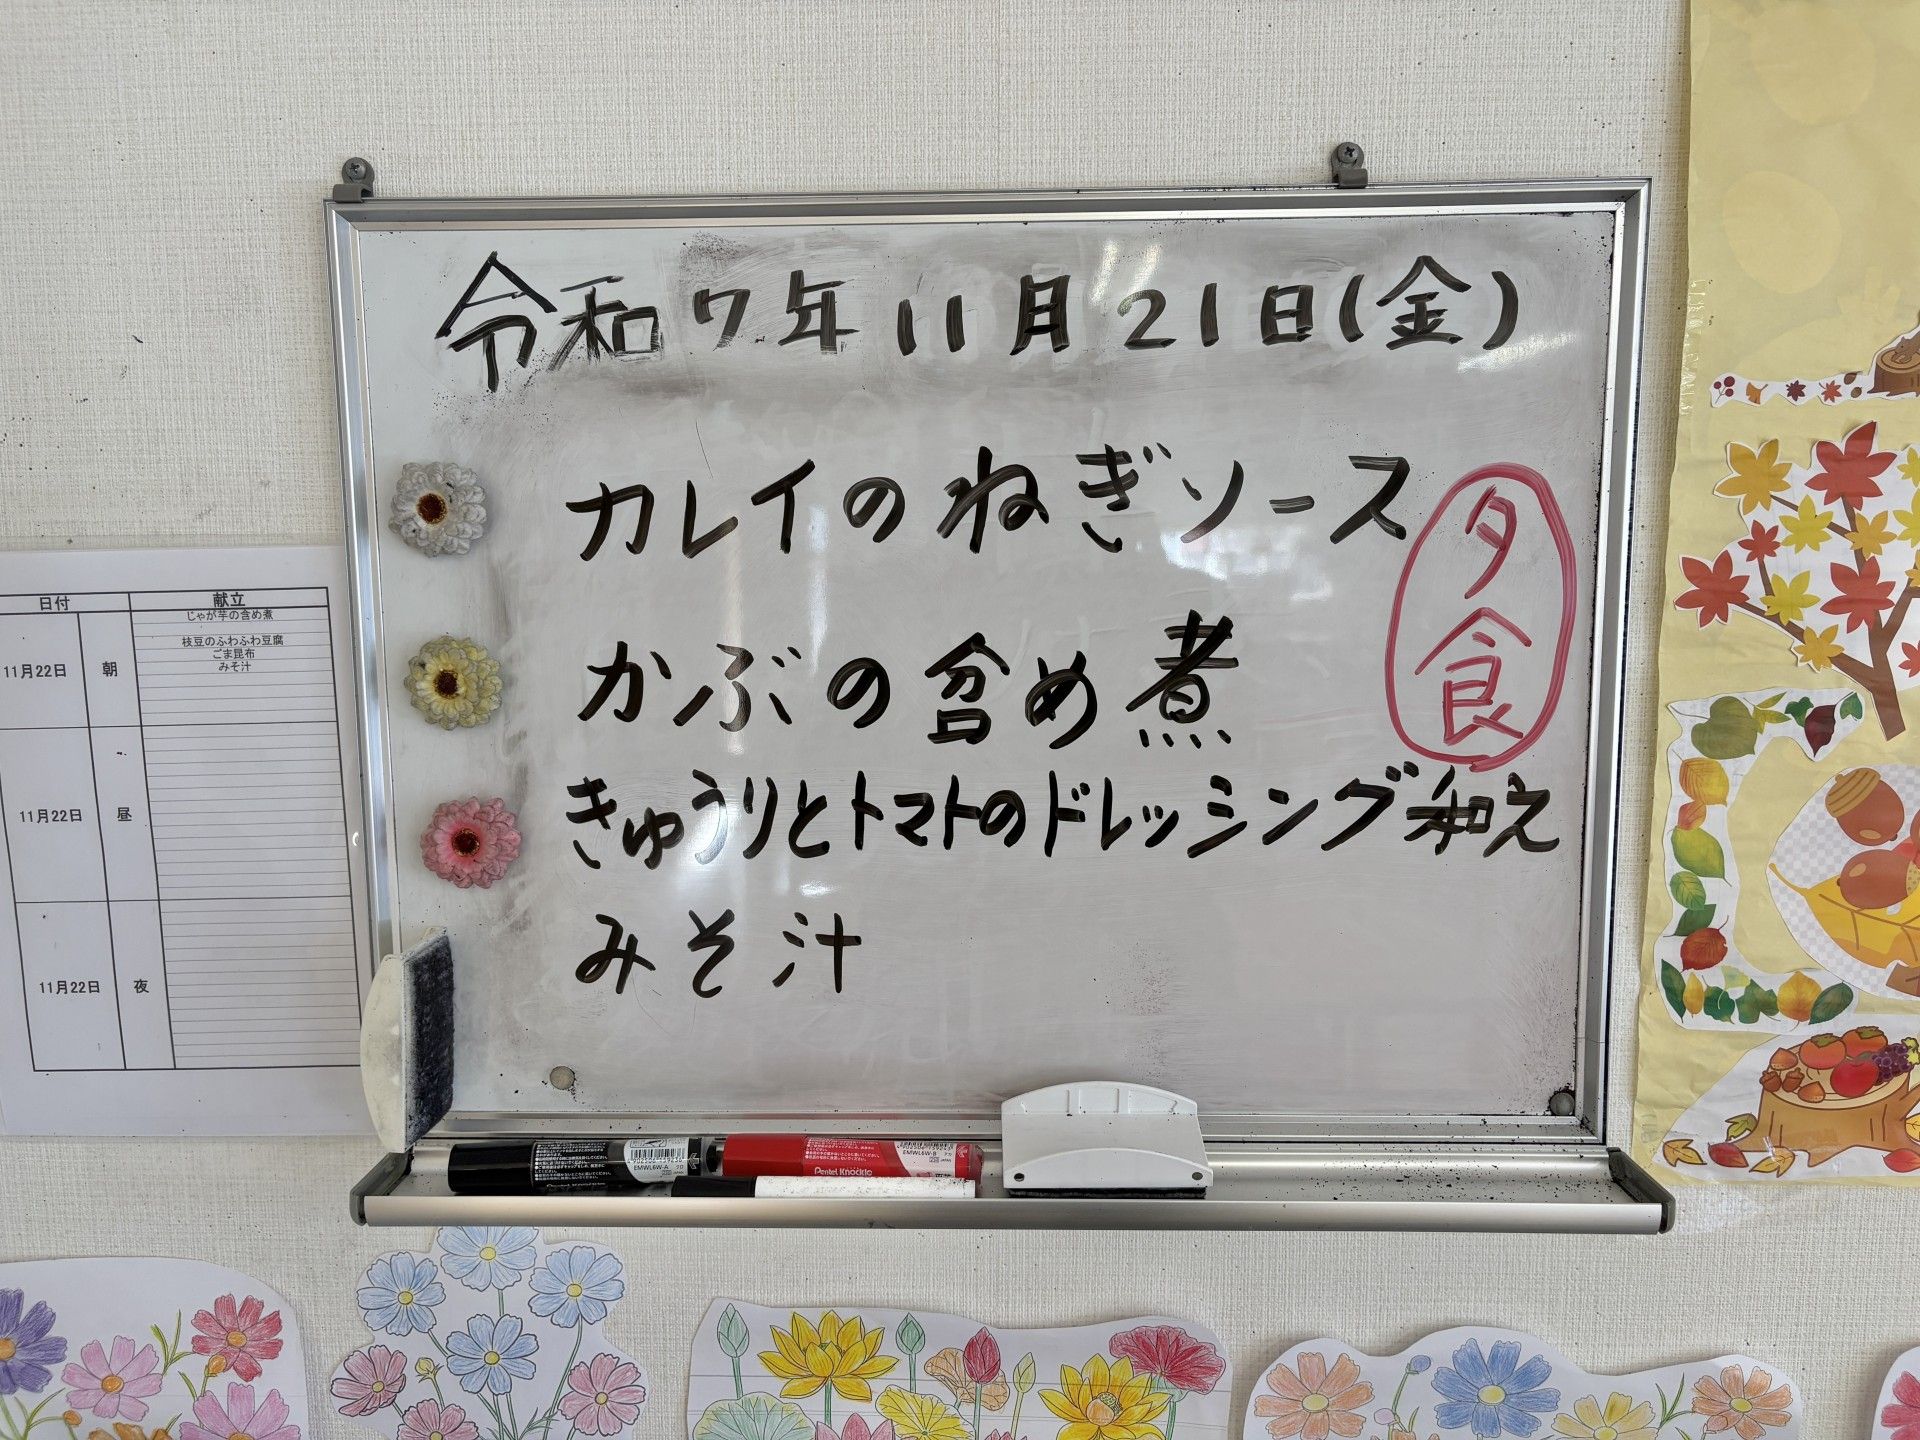 令和7年11月21日(金)
カレイのねぎソース
夕食
かぶの含め煮
きゅうりとトマトのドレッシング和え
みそ汁
日付 献立
11月22日 朝
じゃが芋の含め煮
枝豆のふわふわ豆腐
ごま昆布
みそ汁
11月22日 昼
11月22日 夜
EMWL6W-A
Pentel Knockle
EMWL6W-B